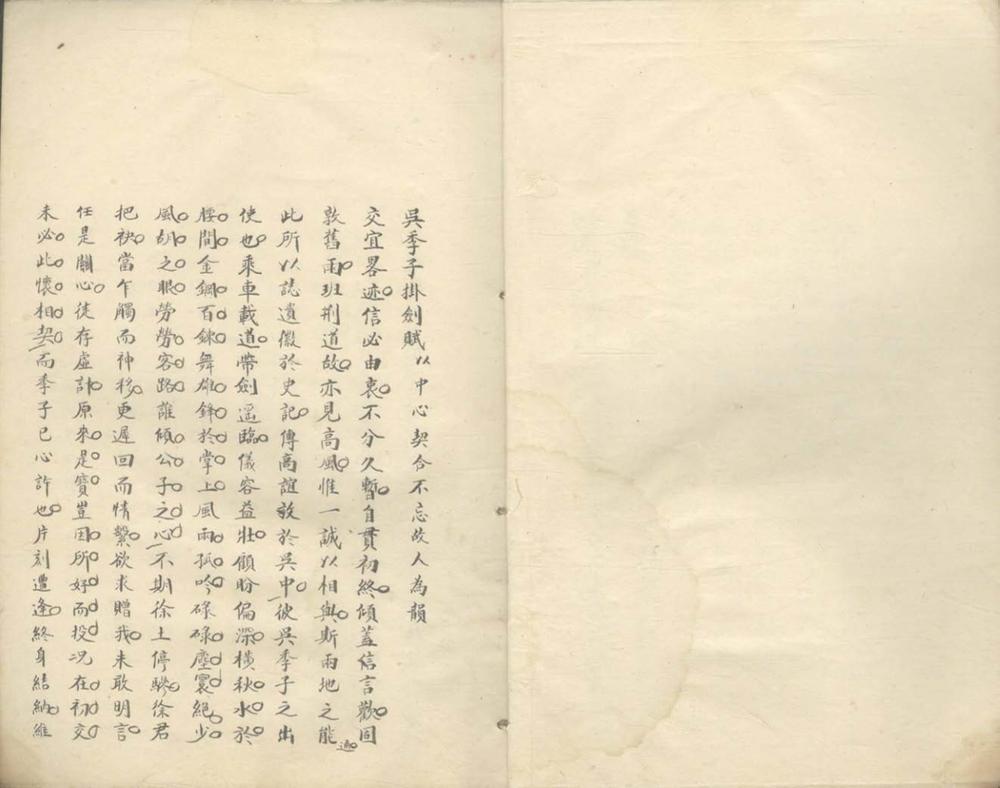 吳季子掛劍賦以中心契合不忘故人為韻
交宜畧迹信必由衷不分久暫自貫初終傾蓋信言歡同
敦舊雨班荆道故亦見高風惟一誠以相與斯兩地之能通
此所以誌遺徽於史記傳高誼於吳中彼吳季子之出
使也乘車載道帶劍遥臨儀容益壯顧盼偏深橫秋水於
腰間金鋼百鍊舞雄鋒於掌上風雨孤吟碌碌塵寰絕少
風胡之眼勞勞客路誰傾公子之心不期徐土停驂徐君
把袂當乍觸而神移更遲回而情繫欲求贈我未敢明言
任是關心徒存虛計原來是寶豈因所好而投况在初交
未必此懷相契而季子已心許也片刻遭逢終身結納維